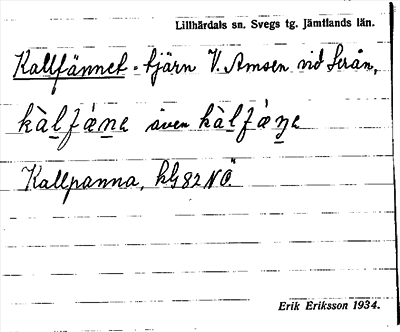 Lillhärdals sn. Svegs tg. Jämtlands län.
Kallfännet - tjärn V. Amsen vid Serån,
kàlfǽne även kàlfǽne
Kallpanna, kG 82 NÖ.
Erik Eriksson 1934.